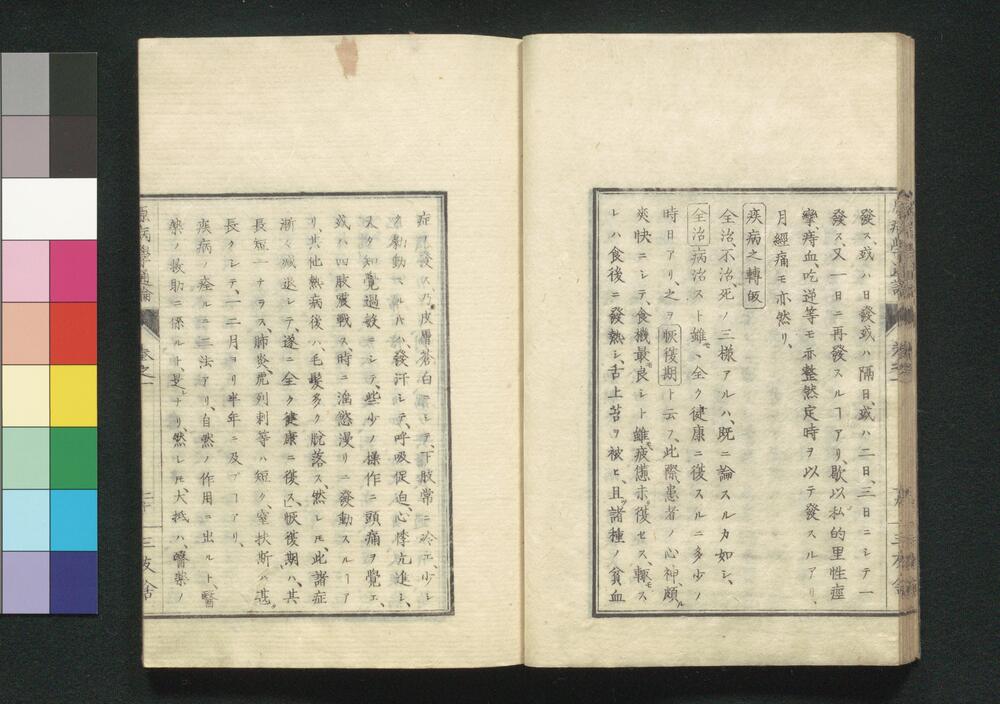 發ス或ハ日發或ハ隔日、或ハ二日、三日ニシテ一
發ス、又一日ニ再發スルヿアリ、歇以私的里性痙
攣、痔血、吃逆等モ亦整然定時ヲ以テ發スルアリ、
月經痛モ亦然リ、
疾病之轉皈
全治、不治、死ノ三樣アルハ、既ニ論スルカ如シ、
全治病治スト雖モ、全ク健康ニ復スルニ多少ノ
時日アリ、之ヲ恢復期ト云フ、此際、患者ノ心神、頗ル
爽快ニシテ、食機最モ良シト雖モ、疲憊未タ復セス、輙モス
レハ食後ニ發熱シ、舌上苔ヲ被ヒ、且ツ諸種ノ貧血
症ヲ發ス、乃皮膚蒼白ニシテ、下肢常ニ冷エ、少シ
ク動スレハ、發汗シテ、呼吸促迫、心悸亢進シ、
又タ知覺過敏ニシテ、些少ノ操作ニ頭痛ヲ覺エ、
或ハ四肢震戰ス時ニ滛慾漫リニ發動スルヿア
リ、其他熱病後ハ、毛髮多ク脫落ス、然レ𪜈、此諸症
漸々減退シテ、遂ニ全ク健康ニ復ス、恢復期ハ、其
長短一ナラス、肺炎、虎列剌等ハ短ク、窒扶斯ハ甚タ
長クシテ、一二月ヨリ半年ニ及フヿアリ、
疾病ノ痊ルニ二法アリ、自然ノ作用ニ出ルト、醫
藥ノ扶助ニ係ルト、是ナリ、然レ𪜈、大抵ハ、醫藥ノ
原病學通論
卷之一
二十
三友舍